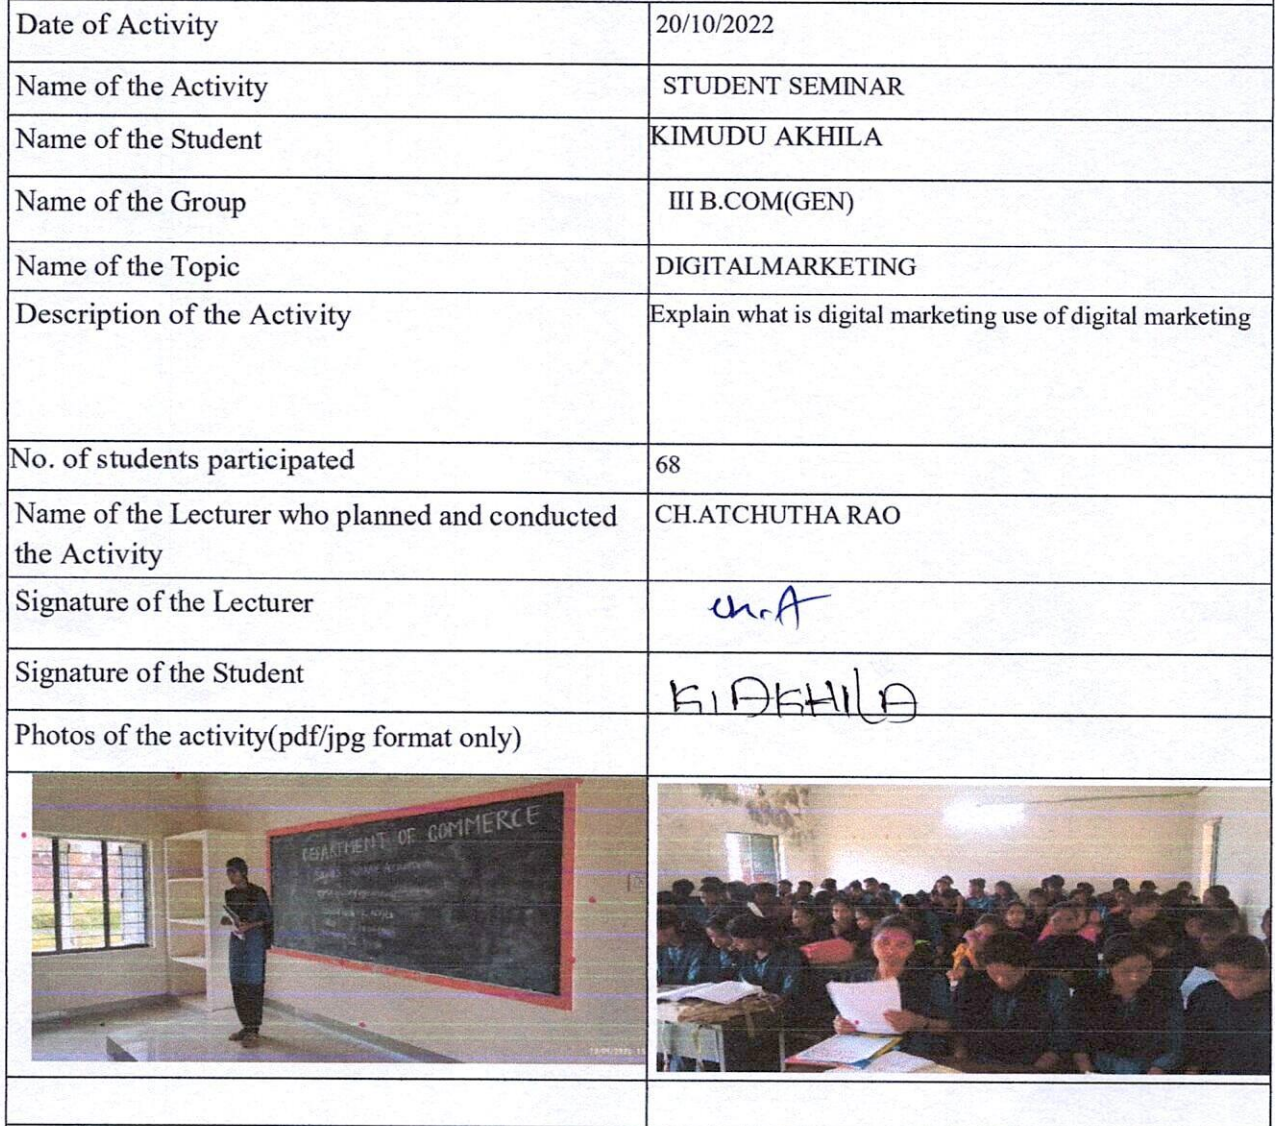 Date of Activity
20/10/2022
Name of the Activity
STUDENT SEMINAR
Name of the Student
KIMUDU AKHILA
Name of the Group
III B.COM(GEN)
Name of the Topic
DIGITALMARKETING
Description of the Activity
Explain what is digital marketing use of digital marketing
No. of students participated
68
Name of the Lecturer who planned and conducted
the Activity
CH.ATCHUTHA RAO
Signature of the Lecturer
Ch.A
Signature of the Student
K1AKHILA
Photos of the activity(pdf/jpg format only)
DEPARTMENT OF COMMERCE